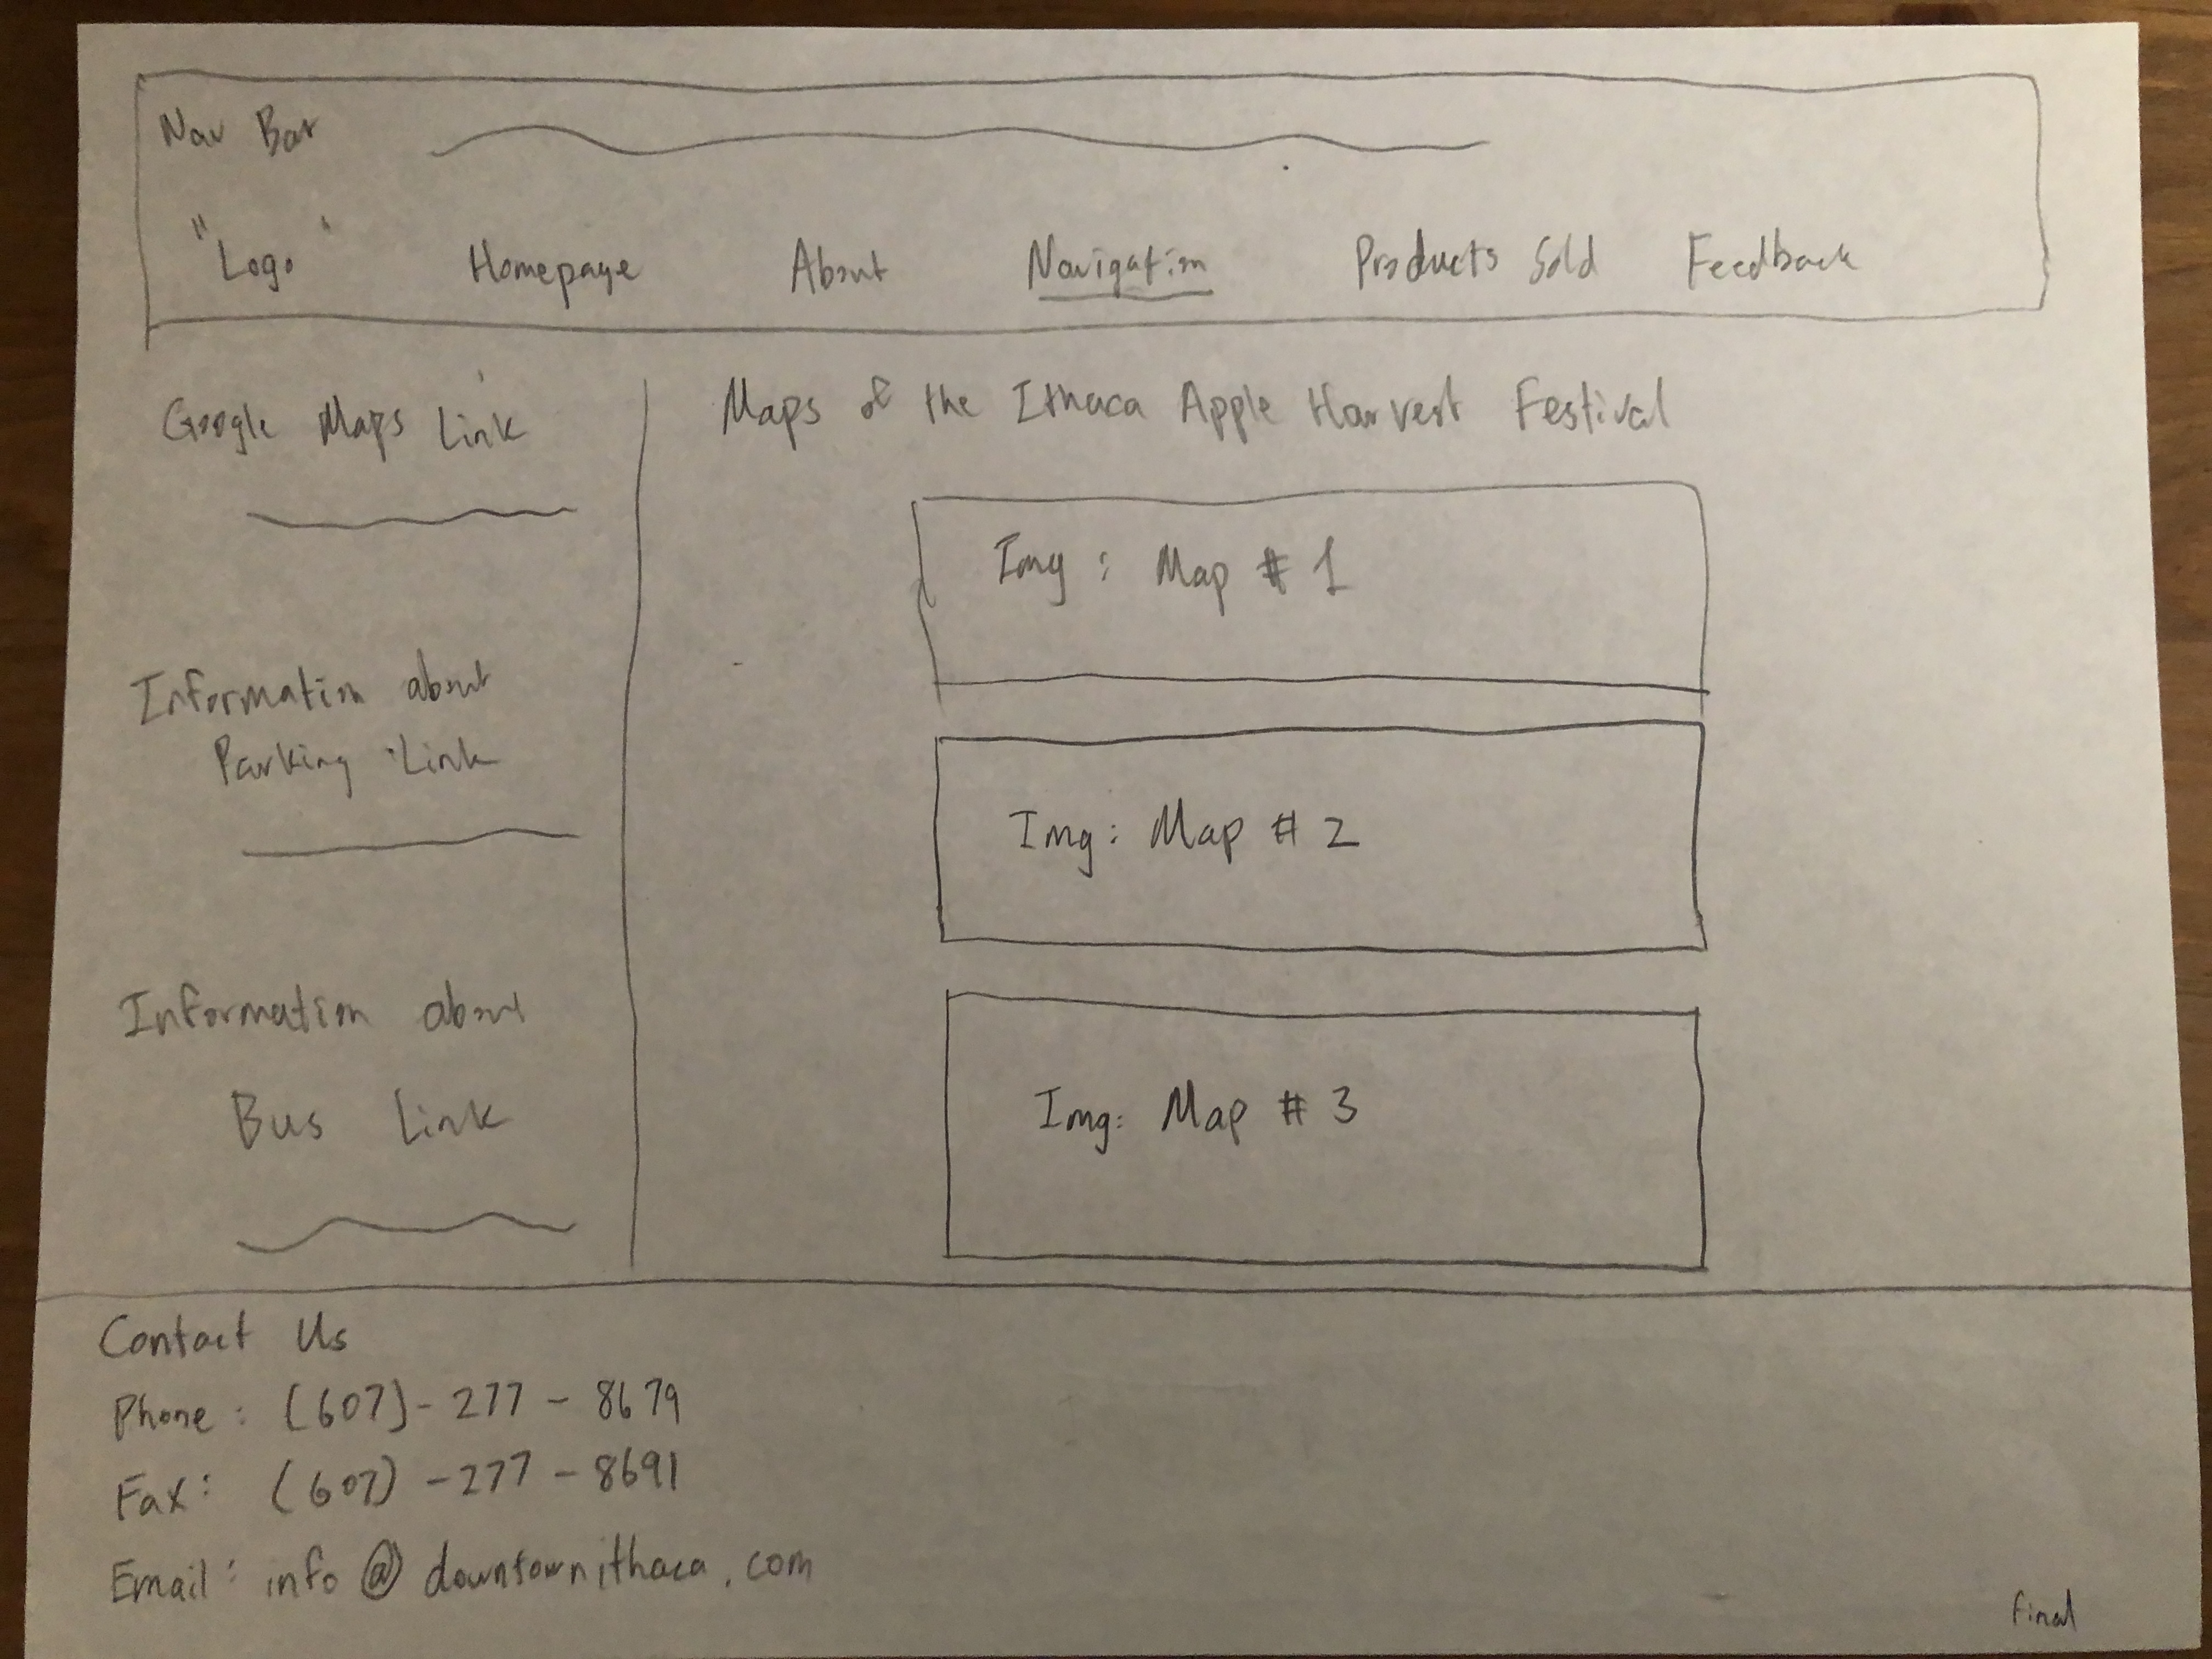 Nav Bar
"Logo" Homepage About Navigation Products Sold Feedback
Google Maps Link
Information about
Parking Link
Information about
Bus Link
Maps of the Ithaca Apple Harvest Festival
Img : Map # 1
Img: Map # 2
Img: Map # 3
Contact Us
Phone: (607)-277-8679
Fax: (607)-277-8691
Email: info@downtownithaca.com
final